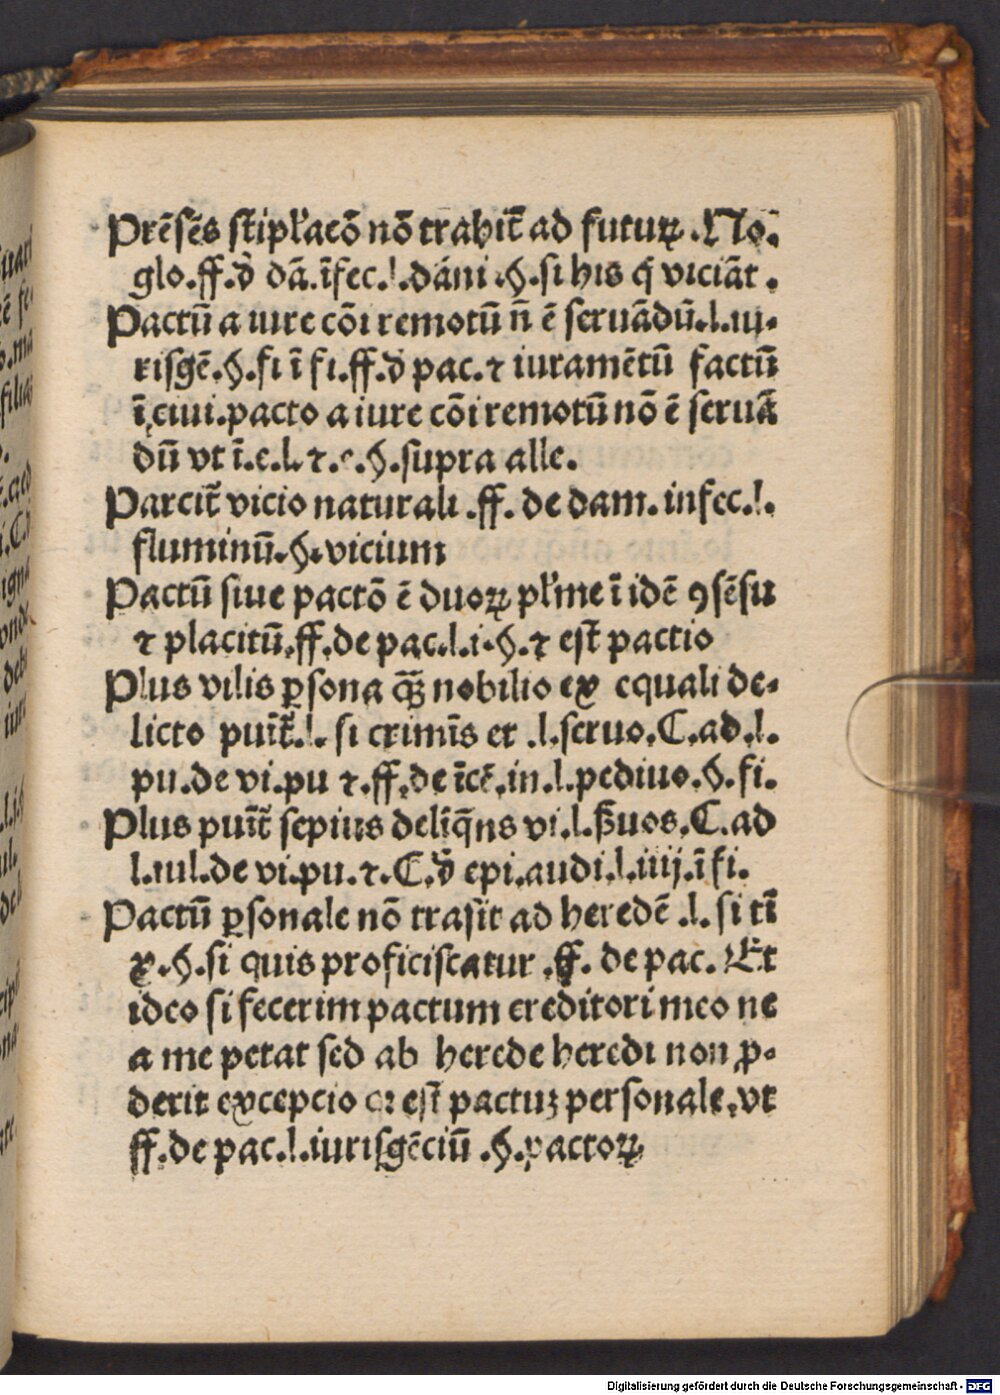 Prēsēs stipl̄acō nō trahit̄ ad futuꝝ .No.
glo.ff.d̄ dā.īfec.l.dāni.§.si his q̄ viciāt.
Pactū a iure cōi remotū n̄ ē seruādū.l.iu-
risgē.§.fi ī fi.ff.d̄ pac.⁊ iuramētū factū
ī ciui.pacto a iure cōi remotū nō ē seruā
dū vt ī.e.l. ⁊.e.§.supra alle.
Parcit̄ vicio naturali .ff. de dam. infec.l.
fluminū.§.vicium
Pactū siue pactō ē duoꝝ pl̄me ī idē ꝯsēsu
⁊ placitū.ff.de pac.l.i.§.⁊ est pactio
Plus vilis ꝑsona qꝫ̄ nobilio ex equali de-
licto puīt̄.l. si crimīs et .l.seruo.C.ad.l.
pu.de vi.pu ⁊.ff.de īcē.in.l.pediuo.§.fi.
Plus puīt̄ sepius delīq̄ns vi.l.ẞuos.C.ad
l.iul.de vi.pu.⁊.C.d̄ epi.audi.l.iiij.ī fi.
Pactū ꝑsonale nō trāsit ad heredē .l. si tī
x.§.si quis proficiscatur .ff. de pac. Et
ideo si fecerim pactum creditori meo ne
a me petat sed ab herede heredi non ꝓ-
derit excepcio qꝛ est pactuꝫ personale.vt
ff.de pac.l.iurisgēciū .§.pactoꝝ
Digitalisierung gefördert durch die Deutsche Forschungsgemeinschaft - DFG